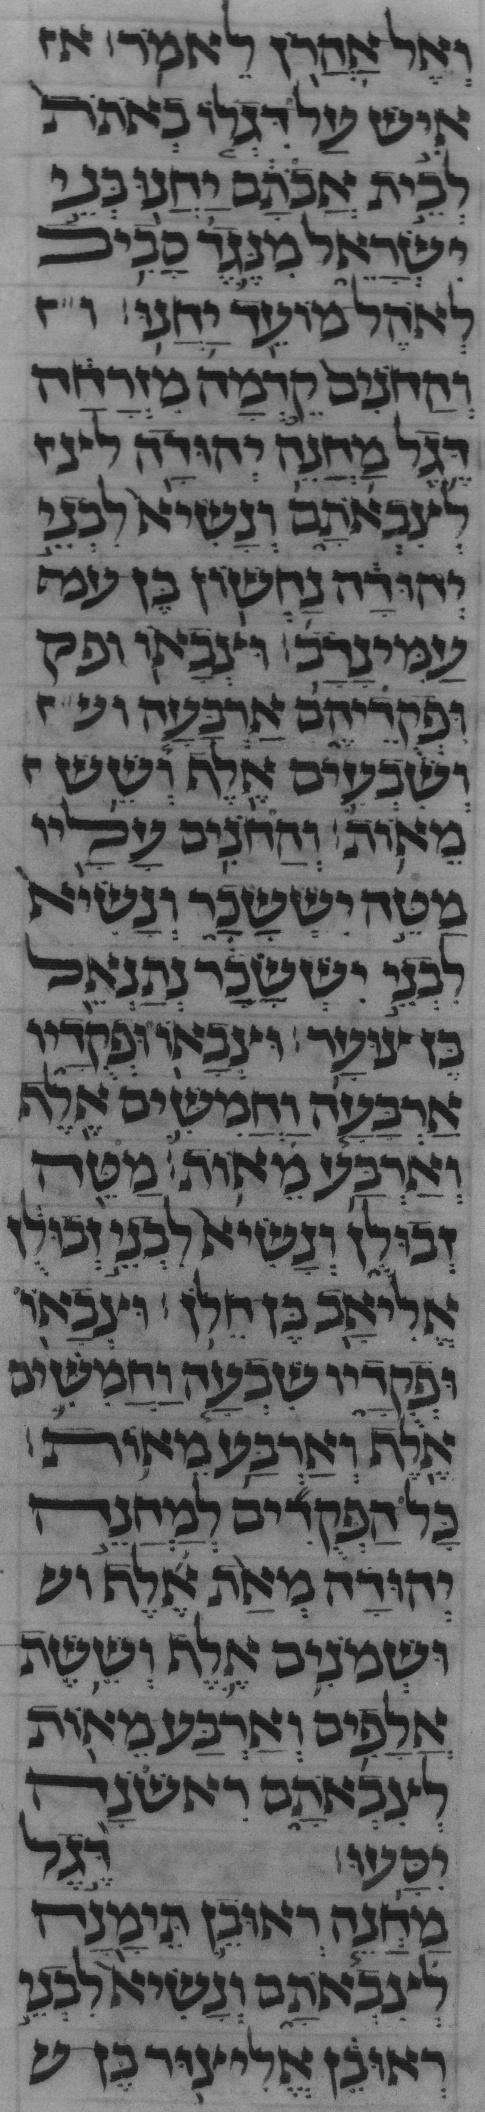 וְאֶל אַהֲרֹן לֵאמֹר׃ א
אִישׁ עַל דִּגְלוֹ בְאֹתֹת
לְבֵית אֲבֹתָם יַחֲנוּ בְּנֵי
יִשְׂרָאֵל מִנֶּגֶד סָבִיב
לְאֹהֶל מוֹעֵד יַחֲנוּ׃ ו
וְהַחֹנִים קֵדְמָה מִזְרָחָה
דֶּגֶל מַחֲנֵה יְהוּדָה לצ
לְצִבְאֹתָם וְנָשִׂיא לִבְנֵי
יְהוּדָה נַחְשׁוֹן בֶּן עמ
עַמִּינָדָב׃ וּצְבָאוֹ ופק
וּפְקֻדֵיהֶם אַרְבָּעָה וש
וְשִׁבְעִים אֶלֶף וְשֵׁשׁ
מֵאוֹת׃ וְהַחֹנִים עָלָיו
מַטֵּה יִשָּׂשכָר וְנָשִׂיא
לִבְנֵי יִשָּׂשכָר נְתַנְאֵל
בֶּן צוּעָר׃ וּצְבָאוֹ וּפְקֻדָיו
אַרְבָּעָה וַחֲמִשִּׁים אֶלֶף
וְאַרְבַּע מֵאוֹת׃ מַטֵּה
זְבוּלֻן וְנָשִׂיא לִבְנֵי זְבוּלֻן
אֱלִיאָב בֶּן חֵלֹן׃ וּצְבָאוֹ
וּפְקֻדָיו שִׁבְעָה וַחֲמִשִּׁים
אֶלֶף וְאַרְבַּע מֵאוֹת׃
כָּל הַפְּקֻדִים לְמַחֲנֵה
יְהוּדָה מְאַת אֶלֶף וש
וּשְׁמֹנִים אֶלֶף וְשֵׁשֶׁת
אֲלָפִים וְאַרְבַּע מֵאוֹת
לְצִבְאֹתָם רִאשֹׁנָה
יִסָּעוּ׃ דֶּגֶל
מַחֲנֵה רְאוּבֵן תֵּימָנָה
לְצִבְאֹתָם וְנָשִׂיא לִבְנֵי
רְאוּבֵן אֱלִיצוּר בֶּן ש